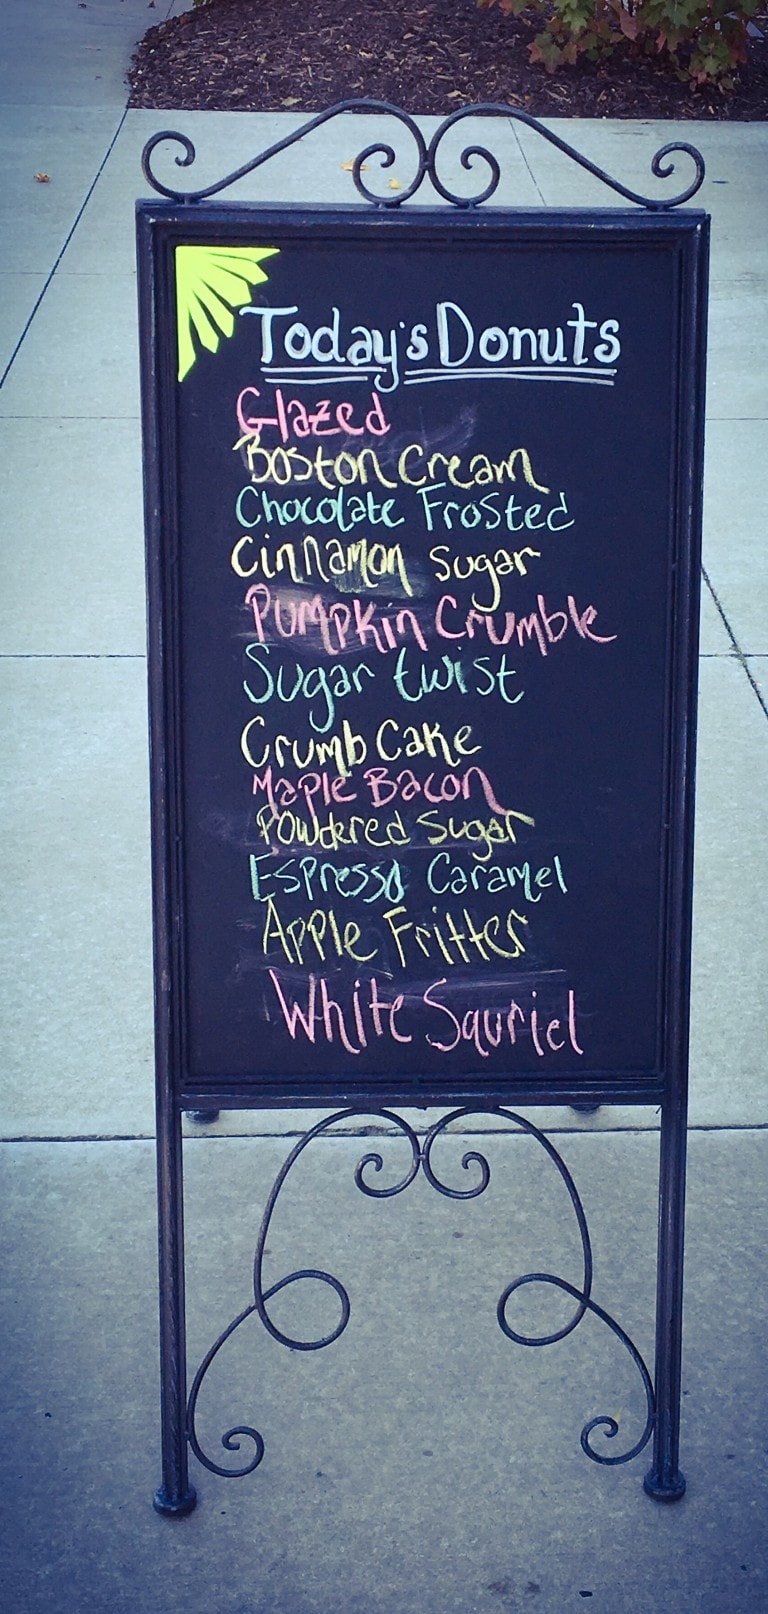 Today's Donuts
Glazed
Boston Cream
Chocolate Frosted
Cinnamon Sugar
Pumpkin Crumble
Sugar twist
Crumb Cake
Maple Bacon
Powdered Sugar
Espresso Caramel
Apple Fritter
White Squriel